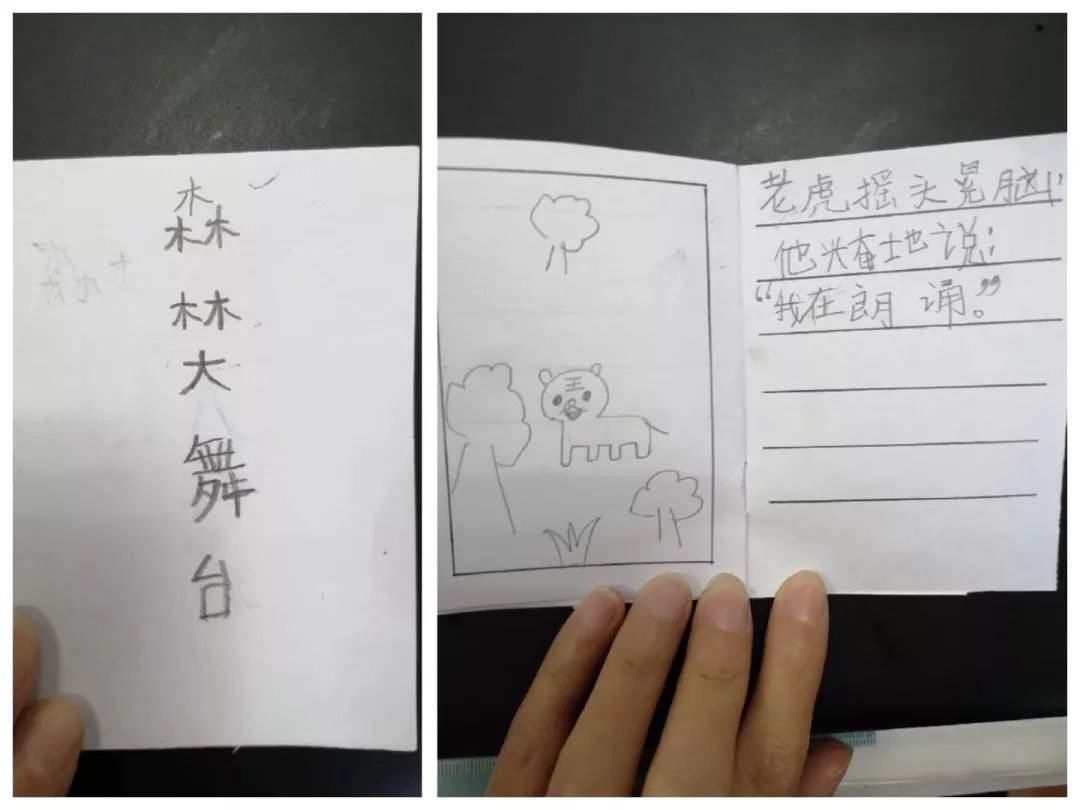 森林大舞台
王
老虎摇头晃脑,
他兴奋地说:
“我在朗诵。”